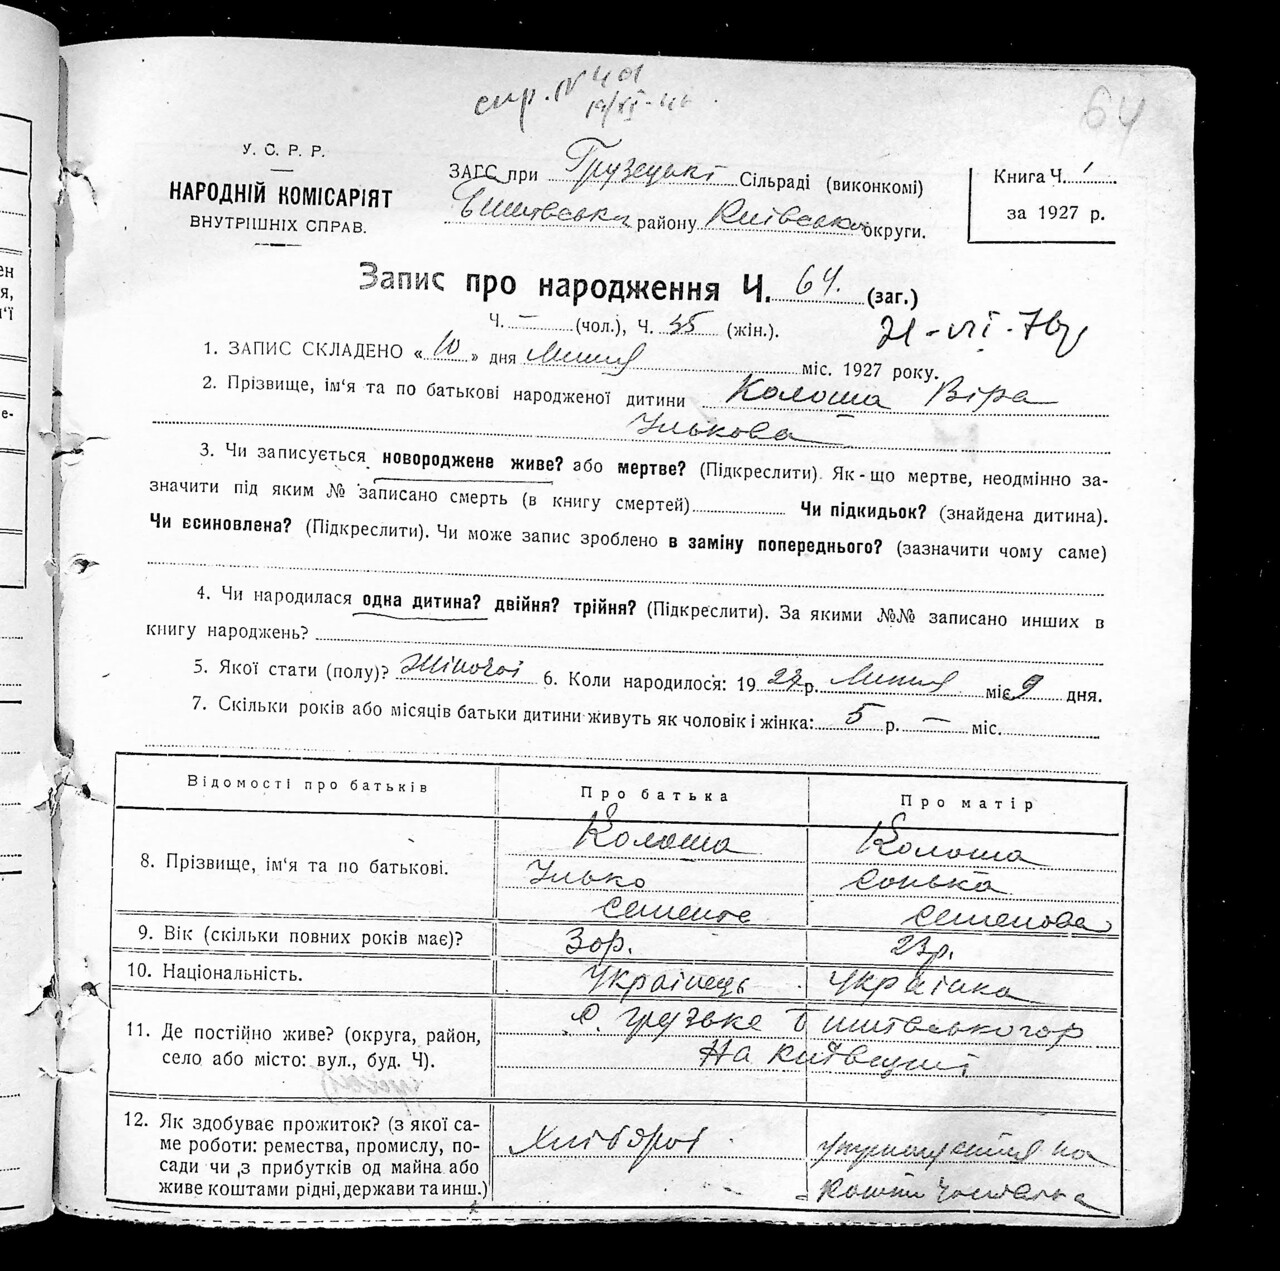 спр. N 401
19/XI-46
64
У. С. Р. Р.
НАРОДНІЙ КОМІСАРІЯТ
ВНУТРІШНІХ СПРАВ.
ЗАГС при Грузецькі Сільраді (виконкомі)
району Київська округи.
Книга Ч. 1
за 1927 р.
Запис про народження Ч. 64. (заг.)
Ч. — (чол.), Ч. 35 (жін.).
1. ЗАПИС СКЛАДЕНО «10» дня Липня міс. 1927 року.
2. Прізвище, ім'я та по батькові народженої дитини Колоша Віра
Улькова
3. Чи записується новороджене живе? або мертве? (Підкреслити). Як-що мертве, неодмінно за-
значити під яким № записано смерть (в книгу смертей) Чи підкидьок? (знайдена дитина).
Чи єсиновлена? (Підкреслити). Чи може запис зроблено в заміну попереднього? (зазначити чому саме)
4. Чи народилася одна дитина? двійня? трійня? (Підкреслити). За якими №№ записано инших в
книгу народжень?
5. Якої стати (полу)? Жіночої 6. Коли народилося: 1927 р. Липня міс 9 дня.
7. Скільки років або місяців батьки дитини живуть як чоловік і жінка: 5 р. — міс.
Відомості про батьків
Про батька
Про матір
8. Прізвище, ім'я та по батькові.
Колоша
Улько
Семенов
Колоша
Сонька
Семенова
9. Вік (скільки повних років має)?
30р.
23р.
10. Національність.
Українець
Українка
11. Де постійно живе? (округа, район,
село або місто: вул., буд. Ч).
с. Грузьке Бишівського р
На Київщині
12. Як здобуває прожиток? (з якої са-
ме роботи: ремества, промислу, по-
сади чи з прибутків од майна або
живе коштами рідні, держави та инш.)
Хлібороб
на
кошти чоловіка